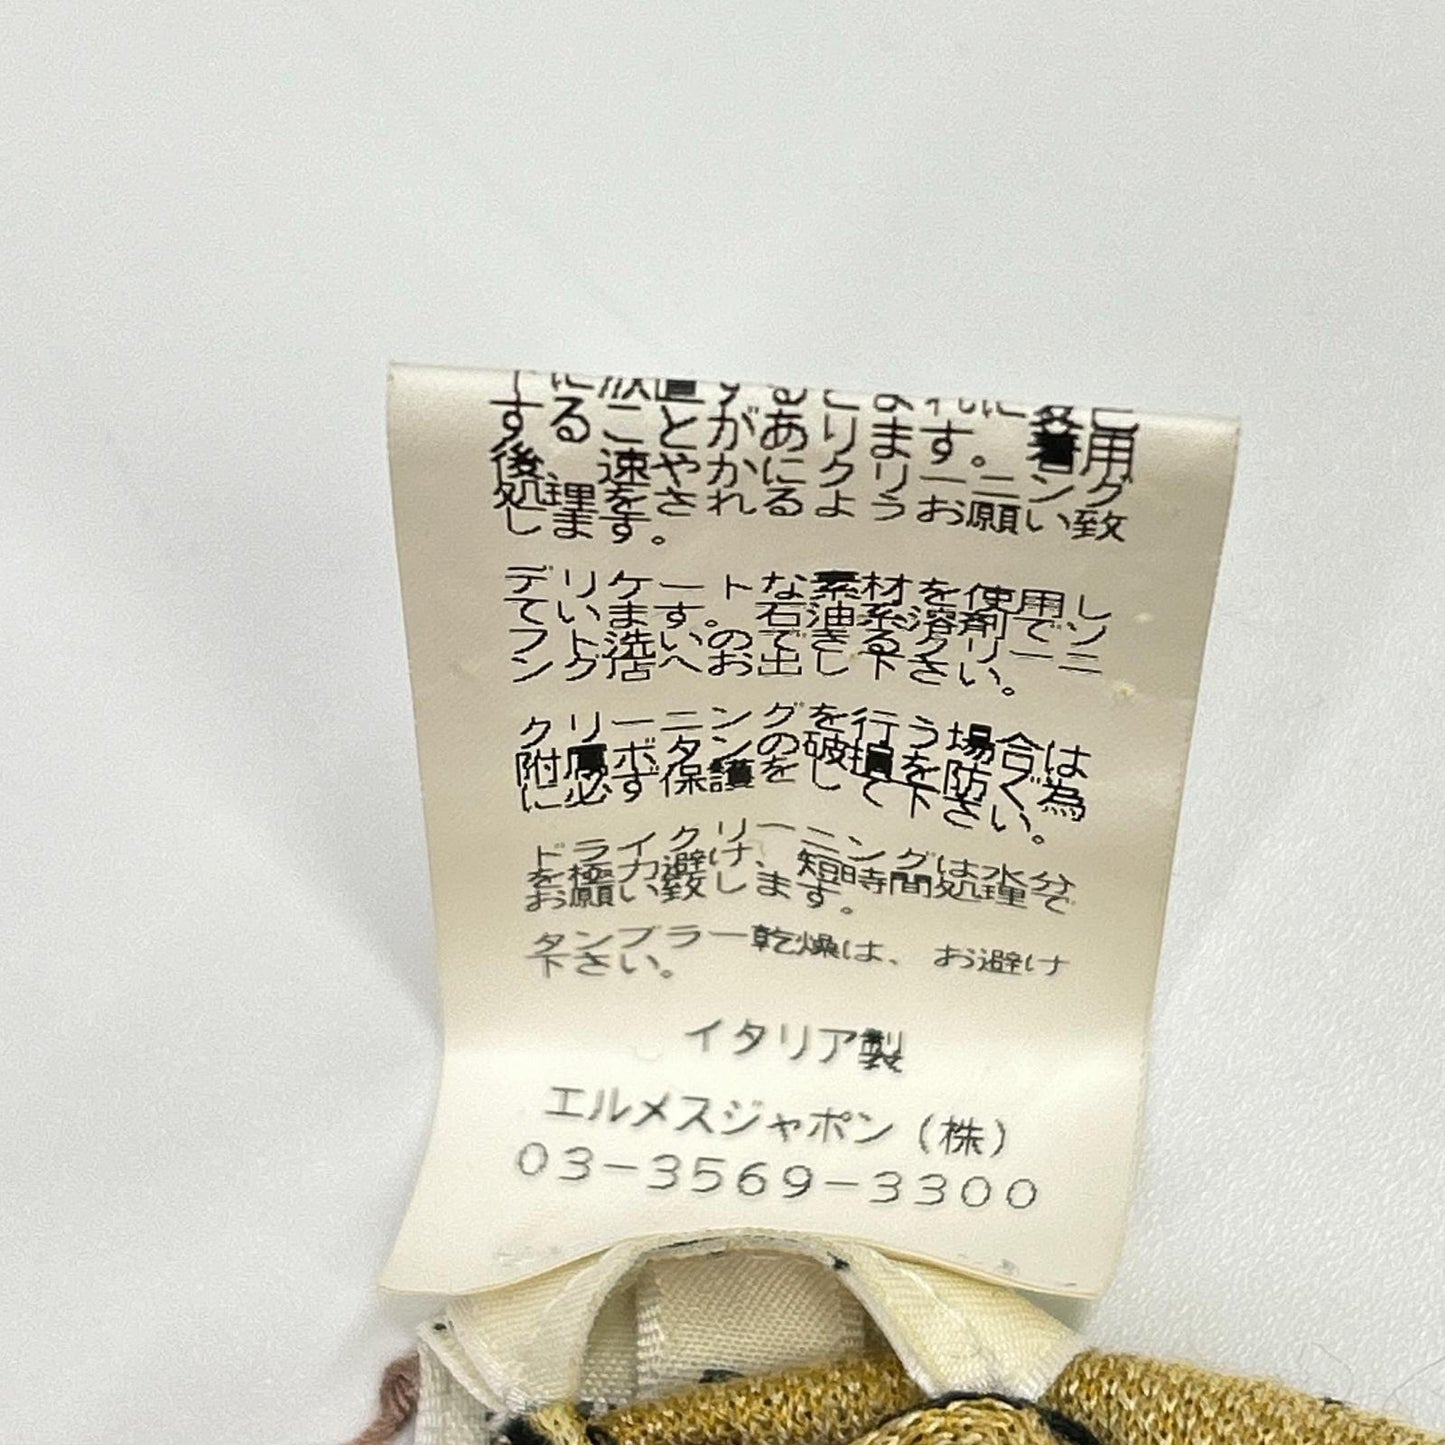 することがあります。着用
後、速やかにクリーニング
処理をされるようお願い致
します。
デリケートな素材を使用し
ています。石油系溶剤でソ
フト洗いのできるクリーニ
ング店へお出し下さい。
クリーニングを行う場合は
附属ボタンの破損を防ぐ為
に必ず保護をして下さい。
ドライクリーニングは水分
を極力避け、短時間処理で
お願い致します。
タンブラー乾燥は、お避け
下さい。
イタリア製
エルメスジャポン(株)
03-3569-3300